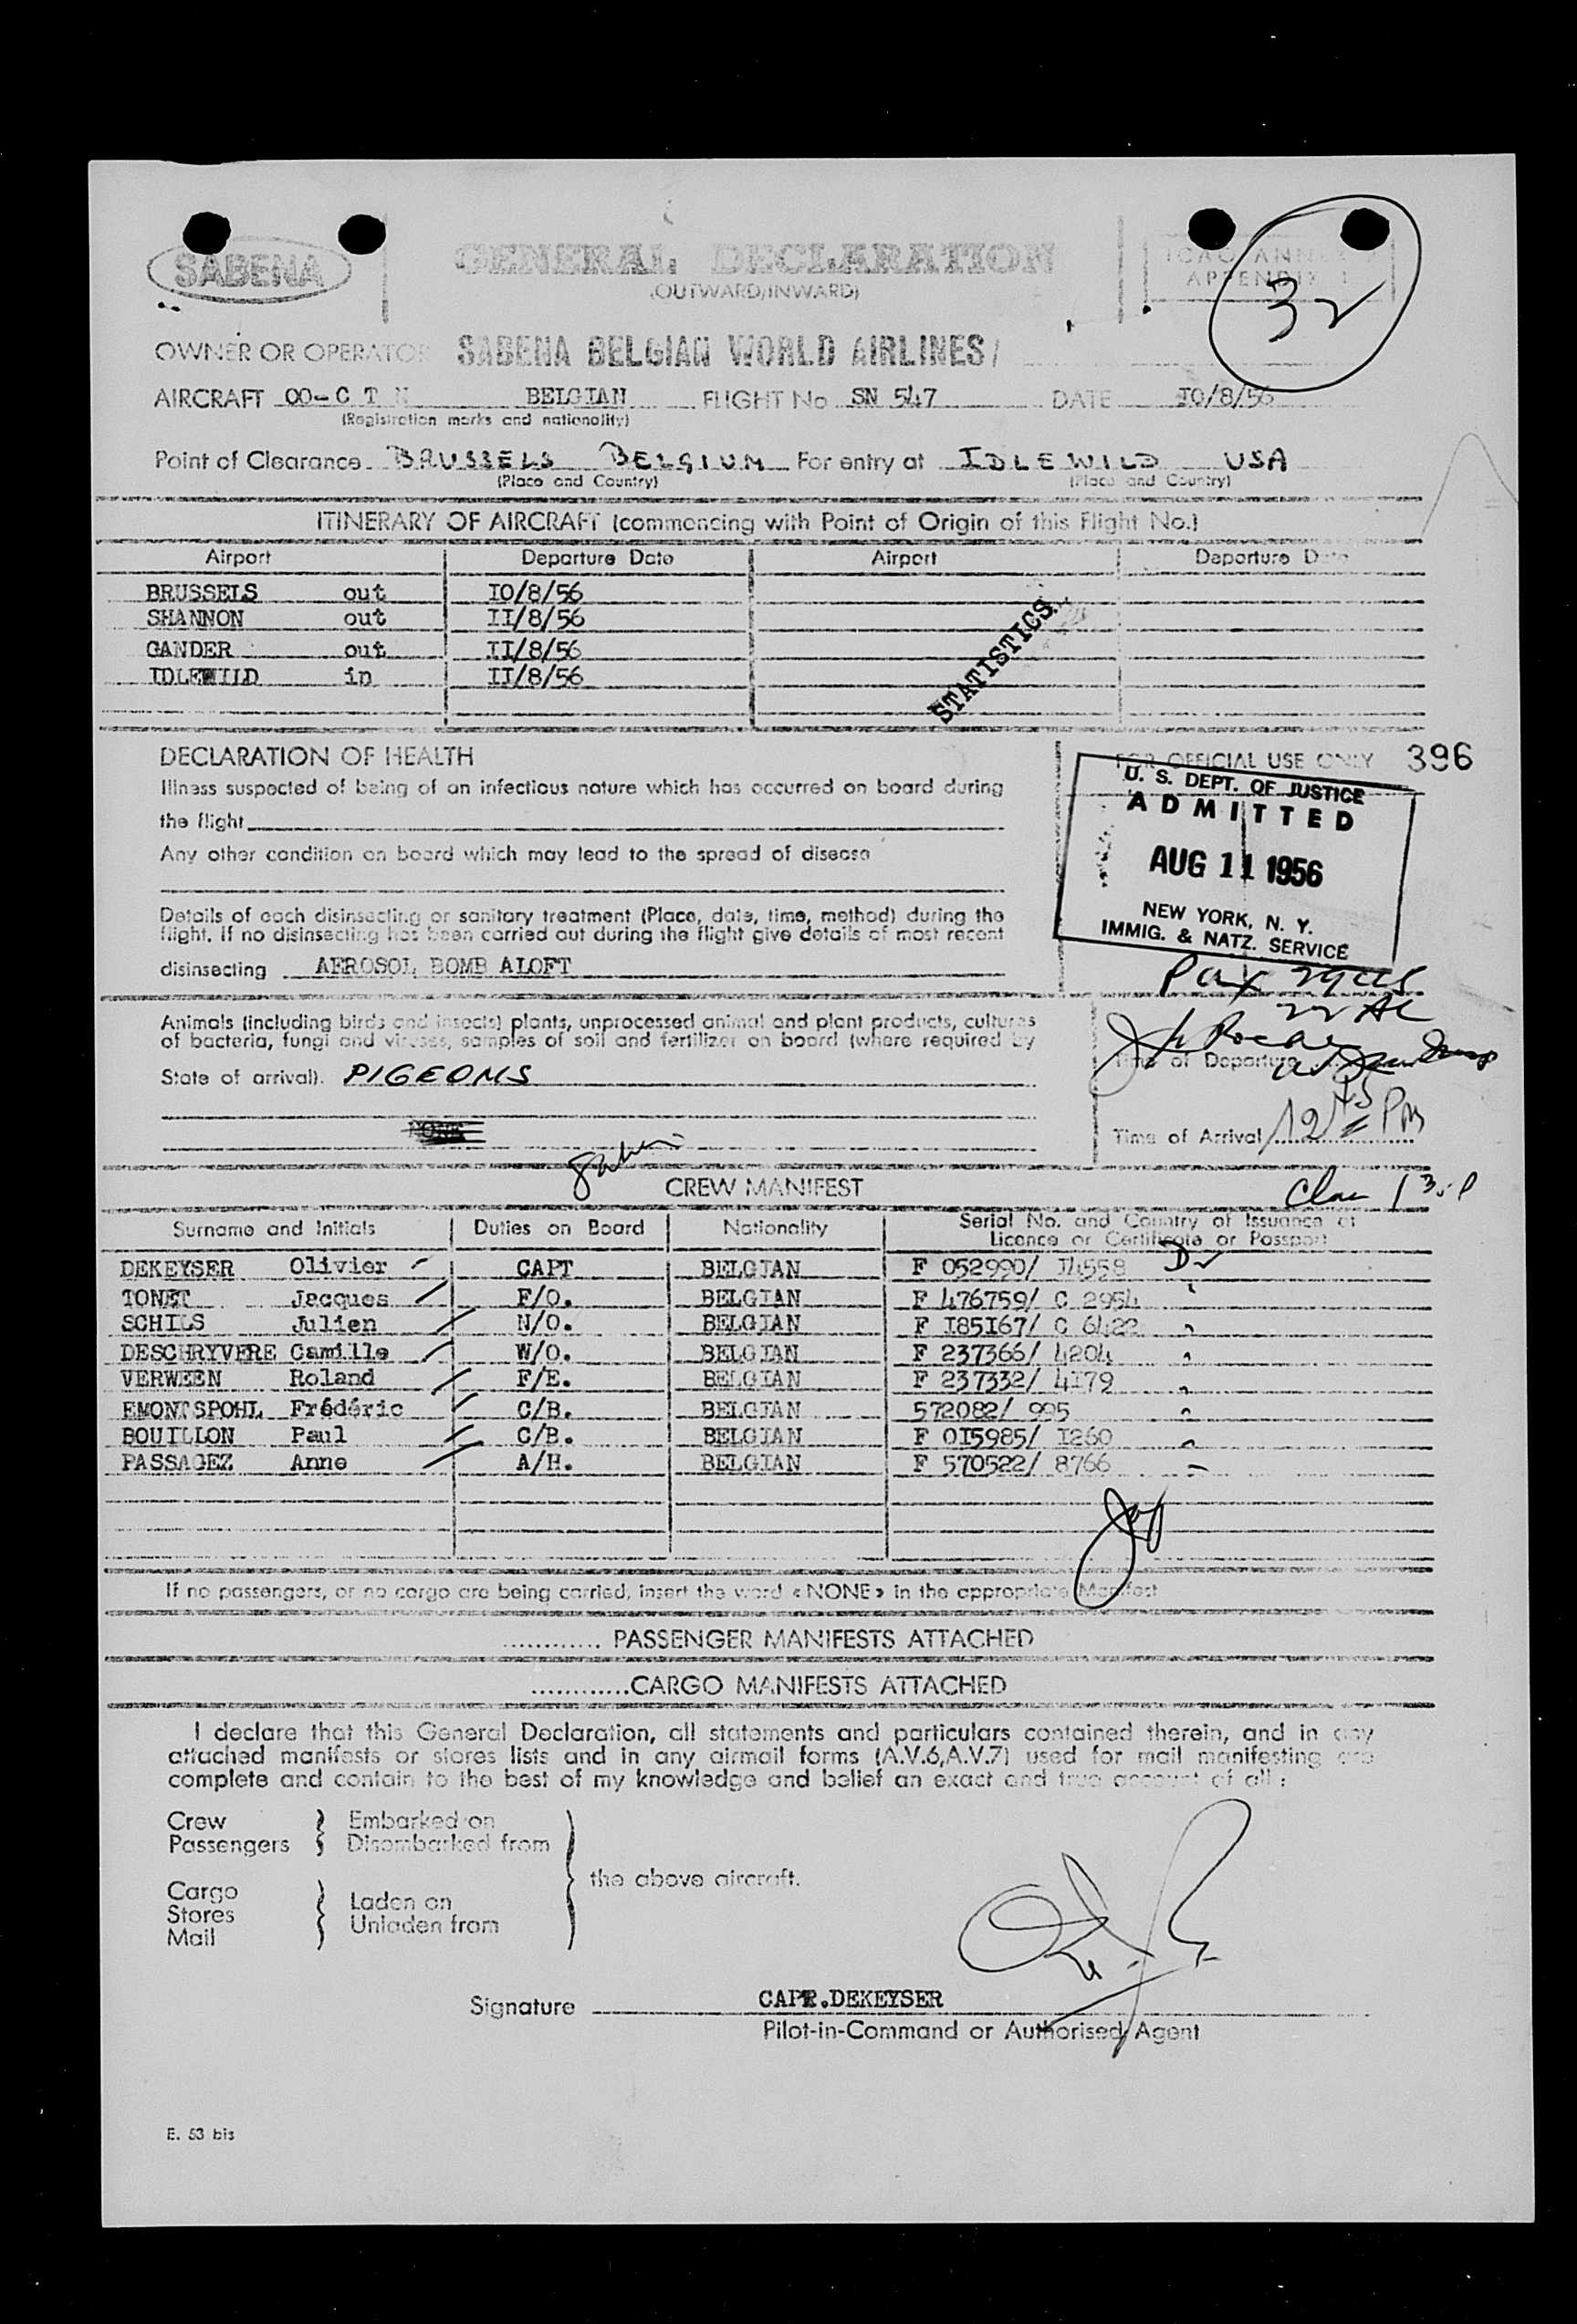 SABENA
GENERAL DECLARATION
(OUTWARD/INWARD)
ICAO ANNEX
APPENDIX 1
32
OWNER OR OPERATOR SABENA BELGIAN WORLD AIRLINES/
AIRCRAFT OO-C T BELGIAN FLIGHT No SN 547 DATE I0/8/56
(Registration marks and nationality)
Point of Clearance BRUSSELS BELGIUM For entry at IDLEWILD USA
(Place and Country) (Place and Country)
ITINERARY OF AIRCRAFT (commencing with Point of Origin of this Flight No.)
Airport Departure Date Airport Departure Date
BRUSSELS out I0/8/56
SHANNON out II/8/56
GANDER out II/8/56
IDLEWILD in II/8/56
STATISTICS
DECLARATION OF HEALTH
FOR OFFICIAL USE ONLY 396
Illness suspected of being of an infectious nature which has occurred on board during
the flight
Any other condition on board which may lead to the spread of disease
U. S. DEPT. OF JUSTICE
ADMITTED
AUG 11 1956
NEW YORK, N. Y.
IMMIG. & NATZ. SERVICE
Details of each disinsecting or sanitary treatment (Place, date, time, method) during the
flight. If no disinsecting has been carried out during the flight give details of most recent
disinsecting AEROSOL BOMB ALOFT
Pax 29
22
Animals (including birds and insects) plants, unprocessed animal and plant products, cultures
of bacteria, fungi and viruses, samples of soil and fertilizer on board (where required by
State of arrival). PIGEONS
Time of Departure
NONE
Time of Arrival 12 45 PM
CREW MANIFEST
Surname and Initials Duties on Board Nationality Serial No. and Country of Issuance of
Licence or Certificate or Passport
DEKEYSER Olivier CAPT BELGIAN F 052990/ I4558
TONET Jacques F/O. BELGIAN F 476759/ C 2954
SCHILS Julien N/O. BELGIAN F I85I67/ C 6422
DESCHRYVERE Camille W/O. BELGIAN F 237366/ 4204
VERWEEN Roland F/E. BELGIAN F 237332/ 4I79
EMONTSPOHL Frédéric C/B. BELGIAN 572082/ 995
BOUILLON Paul C/B. BELGIAN F 0I5985/ I260
PASSAGEZ Anne A/H. BELGIAN F 570522/ 8766
If no passengers, or no cargo are being carried, insert the word « NONE » in the appropriate Manifest
............ PASSENGER MANIFESTS ATTACHED
............CARGO MANIFESTS ATTACHED
I declare that this General Declaration, all statements and particulars contained therein, and in any
attached manifests or stores lists and in any airmail forms (A.V.6,A.V.7) used for mail manifesting are
complete and contain to the best of my knowledge and belief an exact and true account of all :
Crew Embarked on
Passengers Disembarked from
the above aircraft.
Cargo
Stores
Mail
Laden on
Unladen from
Signature CAPT.DEKEYSER
Pilot-in-Command or Authorised Agent
E. 53 bis